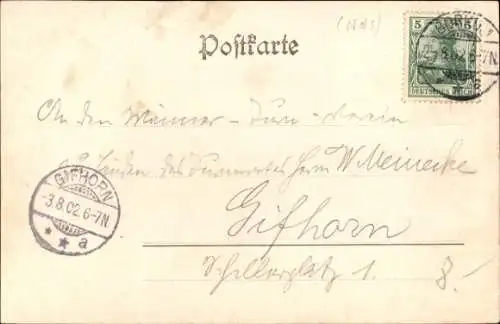 (1898)
Postkarte
5 5
DEUTSCHES REICH
8.02.6-7N.
An den Männer-Turn-Verein
zu Händen des Turnwartes Herrn W. Meinecke
Gifhorn
Schillerplatz 1.
8.-
GIFHORN
-3.8.02.6-7N.
* * a